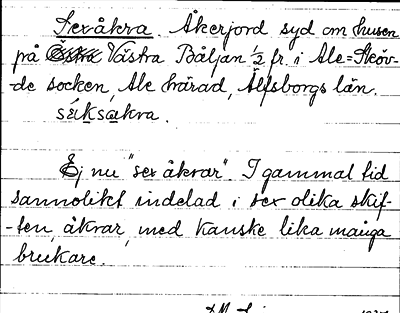 Sexåkra. Åkerjord syd om husen
på Västra Båljan ½ fr. i Ale=Sköv-
de socken, Ale härad, Älfsborgs län.
séksakra.
Ej nu "sex åkrar". I gammal tid
sannolikt indelad i sex olika skif-
-ten, åkrar, med kanske lika många
brukare.